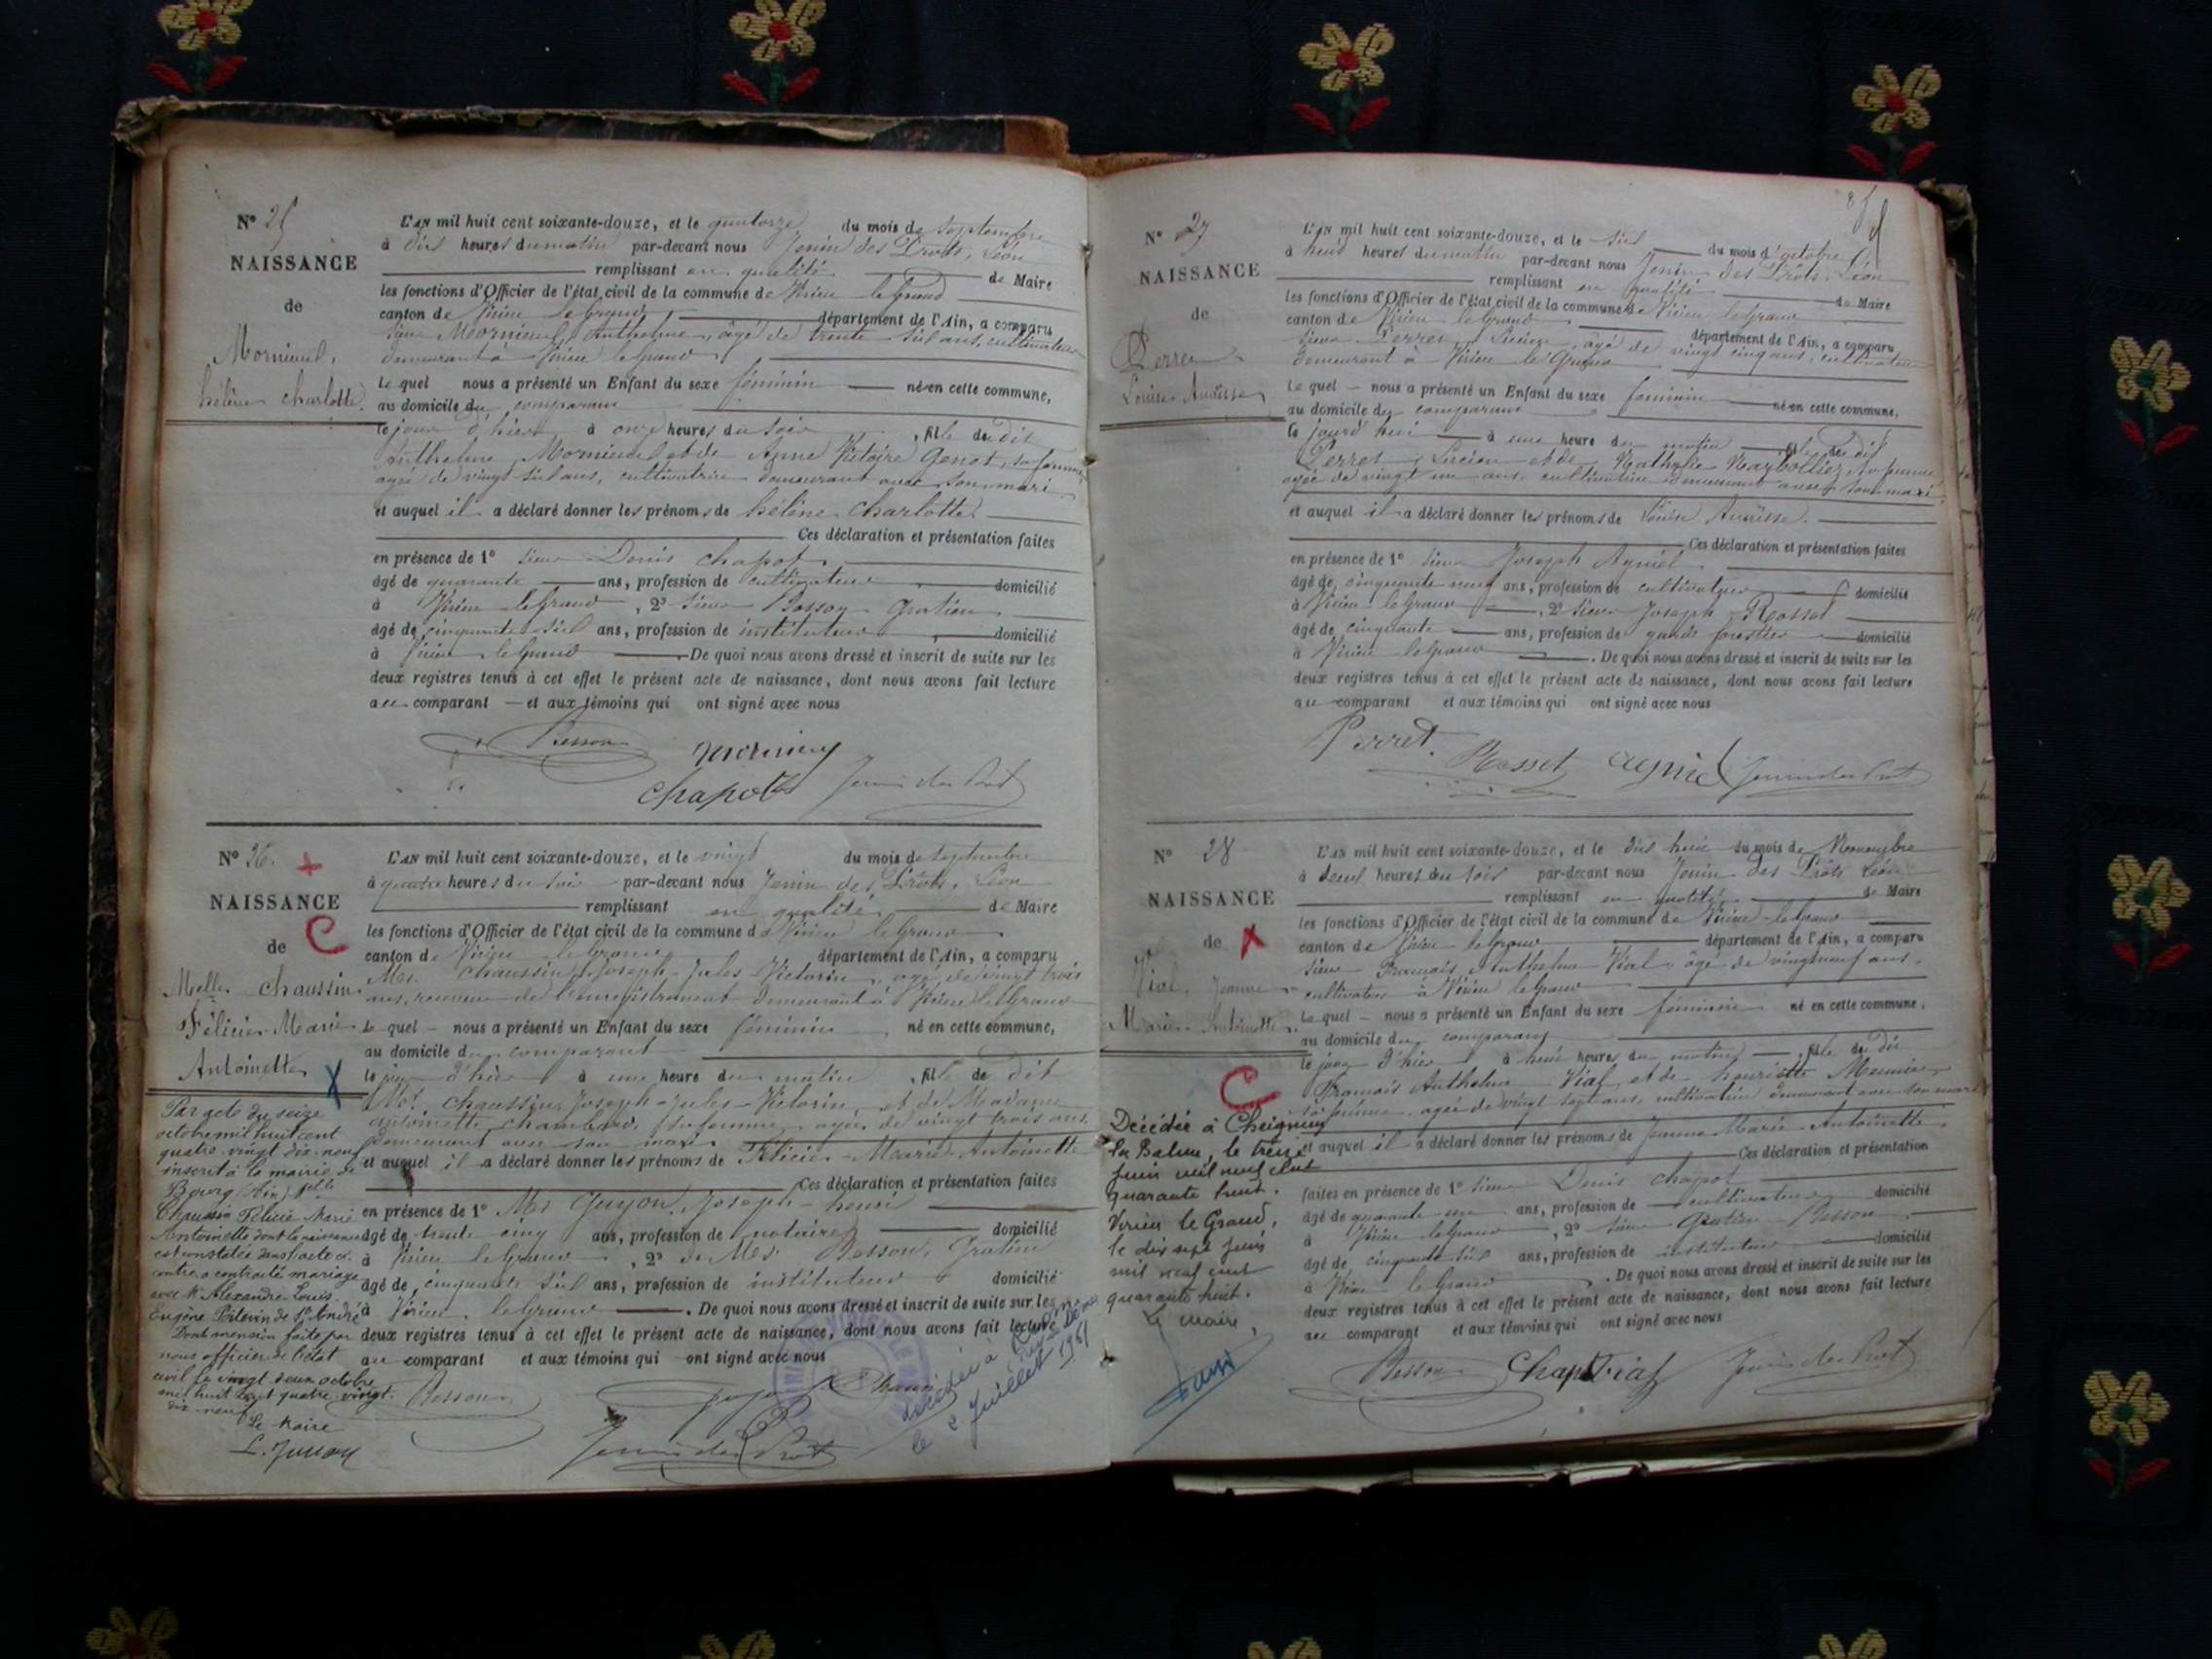 N° 25
NAISSANCE
de
Mornieux,
hélène charlotte.
L'AN mil huit cent soixante-douze, et le quatorze du mois de septembre
à dix heures du matin par-devant nous Jenin des Prôts, Léon
remplissant en qualité de Maire
les fonctions d'Officier de l'état civil de la commune de Virieu le Grand
canton de Virieu le Grand département de l'Ain, a comparu
sieur Mornieux Anthelme, âgé de trente six ans, cultivateur
demeurant à Virieu le Grand
Le quel nous a présenté un Enfant du sexe féminin né en cette commune,
au domicile du comparant
le jour d'hier à onze heures du soir, fille du dit
Anthelme Mornieux et de Anne Victoire Genot, sa femme,
agée de vingt six ans, cultivatrice demeurant avec son mari
et auquel il a déclaré donner les prénoms de hélène charlotte.
Ces déclaration et présentation faites
en présence de 1° sieur Denis chapot
âgé de quarante ans, profession de cultivateur domicilié
à Virieu le Grand, 2° sieur Besson Gratien
âgé de cinquante six ans, profession de instituteur, domicilié
à Virieu le Grand. De quoi nous avons dressé et inscrit de suite sur les
deux registres tenus à cet effet le présent acte de naissance, dont nous avons fait lecture
au comparant et aux témoins qui ont signé avec nous
Besson
chapot Jenin des Prôts
N° 26.
NAISSANCE
de C
Melle chaussin
Félicie Marie
Antoinette X
L'AN mil huit cent soixante-douze, et le vingt du mois de septembre
à quatre heures du soir par-devant nous Jenin des Prôts, Léon
remplissant en qualité de Maire
les fonctions d'Officier de l'état civil de la commune de Virieu le Grand
canton de Virieu le Grand département de l'Ain, a comparu
Mr. chaussin Joseph Jules Victorin, agé de vingt trois
ans, receveur de l'enregistrement demeurant à Virieu le Grand
Le quel nous a présenté un Enfant du sexe féminin né en cette commune,
au domicile du comparant
le jour d'hier à une heure du matin, fille de dit
Mr. chaussin Joseph-Jules-Victorin, et de Madame
antoinette chambard, sa femme, agée de vingt trois ans
demeurant avec son mari
et auquel il a déclaré donner les prénoms de Félicie-Marie-Antoinette
Ces déclaration et présentation faites
en présence de 1° Mr Guyon, Joseph-henri
âgé de trente cinq ans, profession de notaire domicilié
à Virieu le Grand, 2° de Mr. Besson, Gratien
âgé de cinquante six ans, profession de instituteur domicilié
à Virieu le Grand. De quoi nous avons dressé et inscrit de suite sur les
deux registres tenus à cet effet le présent acte de naissance, dont nous avons fait lecture
au comparant et aux témoins qui ont signé avec nous
Besson
Jenin des Prôts
Par acte du seize
octobre mil huit cent
quatre-vingt dix-neuf
inscrit à la mairie de
Bourg (Ain) Melle
Chaussin Félicie Marie
Antoinette dont la naissance
est constatée dans l'acte ci-
contre a contracté mariage
avec Mr Alexandre Louis
Eugène de St André
Dont mention faite par
nous officier de l'état
civil le vingt deux octobre
mil huit cent quatre-vingt-
dix-neuf
Le Maire
décédée à
le 2 Juillet 1951
N° 27
NAISSANCE
de
Perret
Louise
L'AN mil huit cent soixante-douze, et le six du mois d'octobre
à heures du matin par-devant nous Jenin des Prôts, Léon
remplissant en qualité de Maire
les fonctions d'Officier de l'état civil de la commune de Virieu le Grand
canton de Virieu le Grand département de l'Ain, a comparu
sieur Perret Lucien, agé de vingt cinq ans, cultivateur
demeurant à Virieu le Grand
Le quel nous a présenté un Enfant du sexe féminin né en cette commune,
au domicile du comparant
le jourd'hui à une heure du matin, fille du dit
Perret Lucien et de Nathalie sa femme
agée de vingt un ans, cultivatrice demeurant avec son mari
et auquel il a déclaré donner les prénoms de Louise
Ces déclaration et présentation faites
en présence de 1° sieur Joseph Agniel
âgé de cinquante neuf ans, profession de cultivateur domicilié
à Virieu le Grand, 2° sieur Joseph Rosset
âgé de cinquante ans, profession de garde forestier domicilié
à Virieu le Grand. De quoi nous avons dressé et inscrit de suite sur les
deux registres tenus à cet effet le présent acte de naissance, dont nous avons fait lecture
au comparant et aux témoins qui ont signé avec nous
Perret
Rosset agniel Jenin des Prôts
N° 28
NAISSANCE
de X
Vial, Jeanne
Marie Antoinette
C
L'AN mil huit cent soixante-douze, et le dix huit du mois de Novembre
à deux heures du soir par-devant nous Jenin des Prôts Léon
remplissant en qualité de Maire
les fonctions d'Officier de l'état civil de la commune de Virieu-le-Grand
canton de Virieu le Grand département de l'Ain, a comparu
sieur François Anthelme Vial, âgé de vingt neuf ans,
cultivateur à Virieu le Grand
Le quel nous a présenté un Enfant du sexe féminin né en cette commune,
au domicile du comparant
le jour d'hier à huit heures du matin, fille du dit
François Anthelme Vial, et de henriette Meunier
sa femme, agée de vingt sept ans, cultivatrice demeurant avec son mari
et auquel il a déclaré donner les prénoms de Jeanne Marie Antoinette
Ces déclaration et présentation
faites en présence de 1° sieur Denis chapot
âgé de quarante un ans, profession de cultivateur domicilié
à Virieu le Grand, 2° sieur Gratien Besson
âgé de cinquante six ans, profession de instituteur domicilié
à Virieu le Grand. De quoi nous avons dressé et inscrit de suite sur les
deux registres tenus à cet effet le présent acte de naissance, dont nous avons fait lecture
au comparant et aux témoins qui ont signé avec nous
Besson Chapot Vial Jenin des Prôts
Décédée à Cheignieu
la Balme, le treize
juin mil neuf cent
quarante huit.
Virieu le Grand,
le dix sept juin
mil neuf cent
quarante huit.
Le Maire,